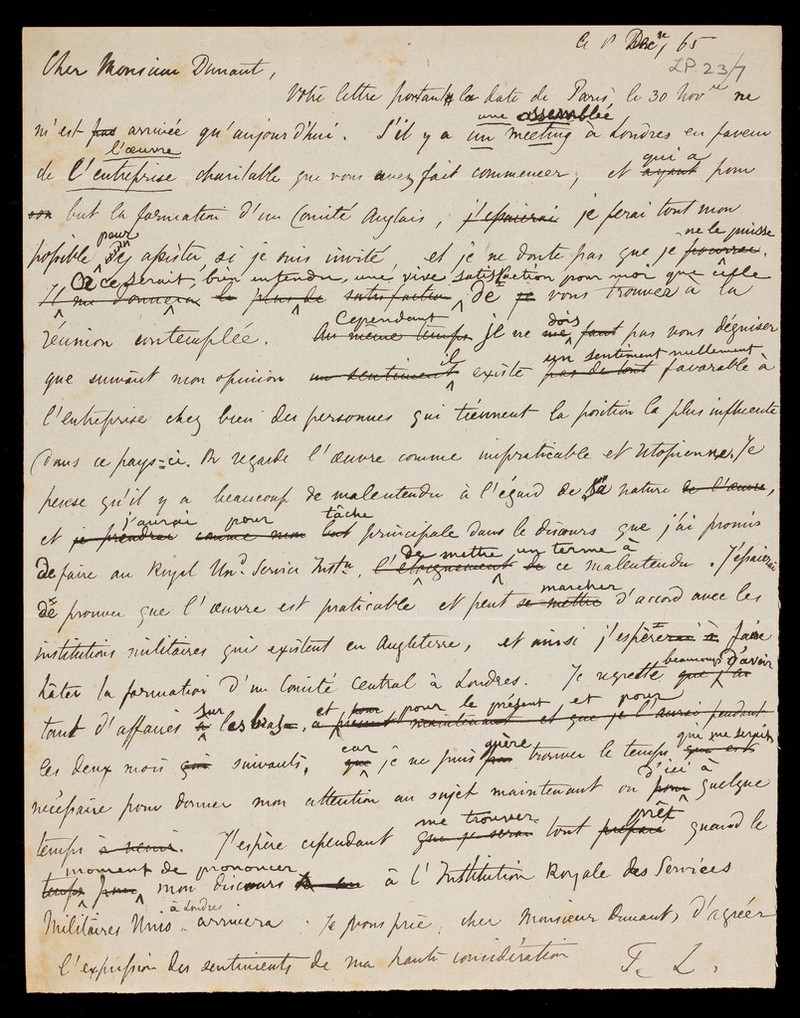 le 1r Decre, 65
LP. 23/7
Cher Monsieur Dunant,
Votre lettre portant la date de Paris, le 30 Novre ne
une assemblée
m'est pas arrivée qu'aujourd'hui. S'il y a un meeting à Londres en faveur
l'œuvre qui a
de l'entreprise charitable que vous avez fait commencer, et ayant pour
son but la formation d'un Comité Anglais, j'essaierai je ferai tout mon
pour ne le puisse
possible d'y assister si je suis invité, et je ne doute pas que je pourrai.
Ce serait, bien entendu, une vive satisfaction pour moi que celle
Il me donnera la plus de satisfaction, de je vous trouver à la
Cependant dois
réunion contemplée. Au même temps je ne me faut pas vous déguiser
il un sentiment nullement
que suivant mon opinion un sentiment existe pas de tout favorable à
l'entreprise chez bien des personnes qui tiennent la position la plus influente
dans ce pays-ci. On regarde l'œuvre comme impraticable et Utopienne. Je
pense qu'il y a beaucoup de malentendu à l'égard de sa nature de l'œuvre,
j'aurai pour tâche
et je prendrai comme mon but principale dans le discours que j'ai promis
de mettre un terme à
De faire au Royal Und. Service Instn, l'éloignement de ce malentendu. J'essaierai
marcher
de prouver que l'œuvre est praticable et peut se mettre d'accord avec les
institutions militaires qui existent en Angleterre, et ainsi j'espère à faire
beaucoup d'avoir
hâter la formation d'un Comité Central à Londres. Je regrette que j'ai
sur et pour le présent, et pour
tant d'affaires les bras, à présent maintenant et que je l'aurai pendant
car guère que me serait
les deux mois qui suivants, que je ne puis pas trouver le temps que est
d'ici à
nécessaire pour donner mon attention au sujet maintenant ou pour quelque
me trouver prêt
temps à venir. J'espère cependant que je serai tout préparé quand le
moment de prononcer
temps pour mon discours à l'Institution Royale des Services
à Londres
Militaires Unis arrivera. Je vous prie, cher Monsieur Dunant, d'agréer
l'expression des sentiments de ma haute considération
T. L.